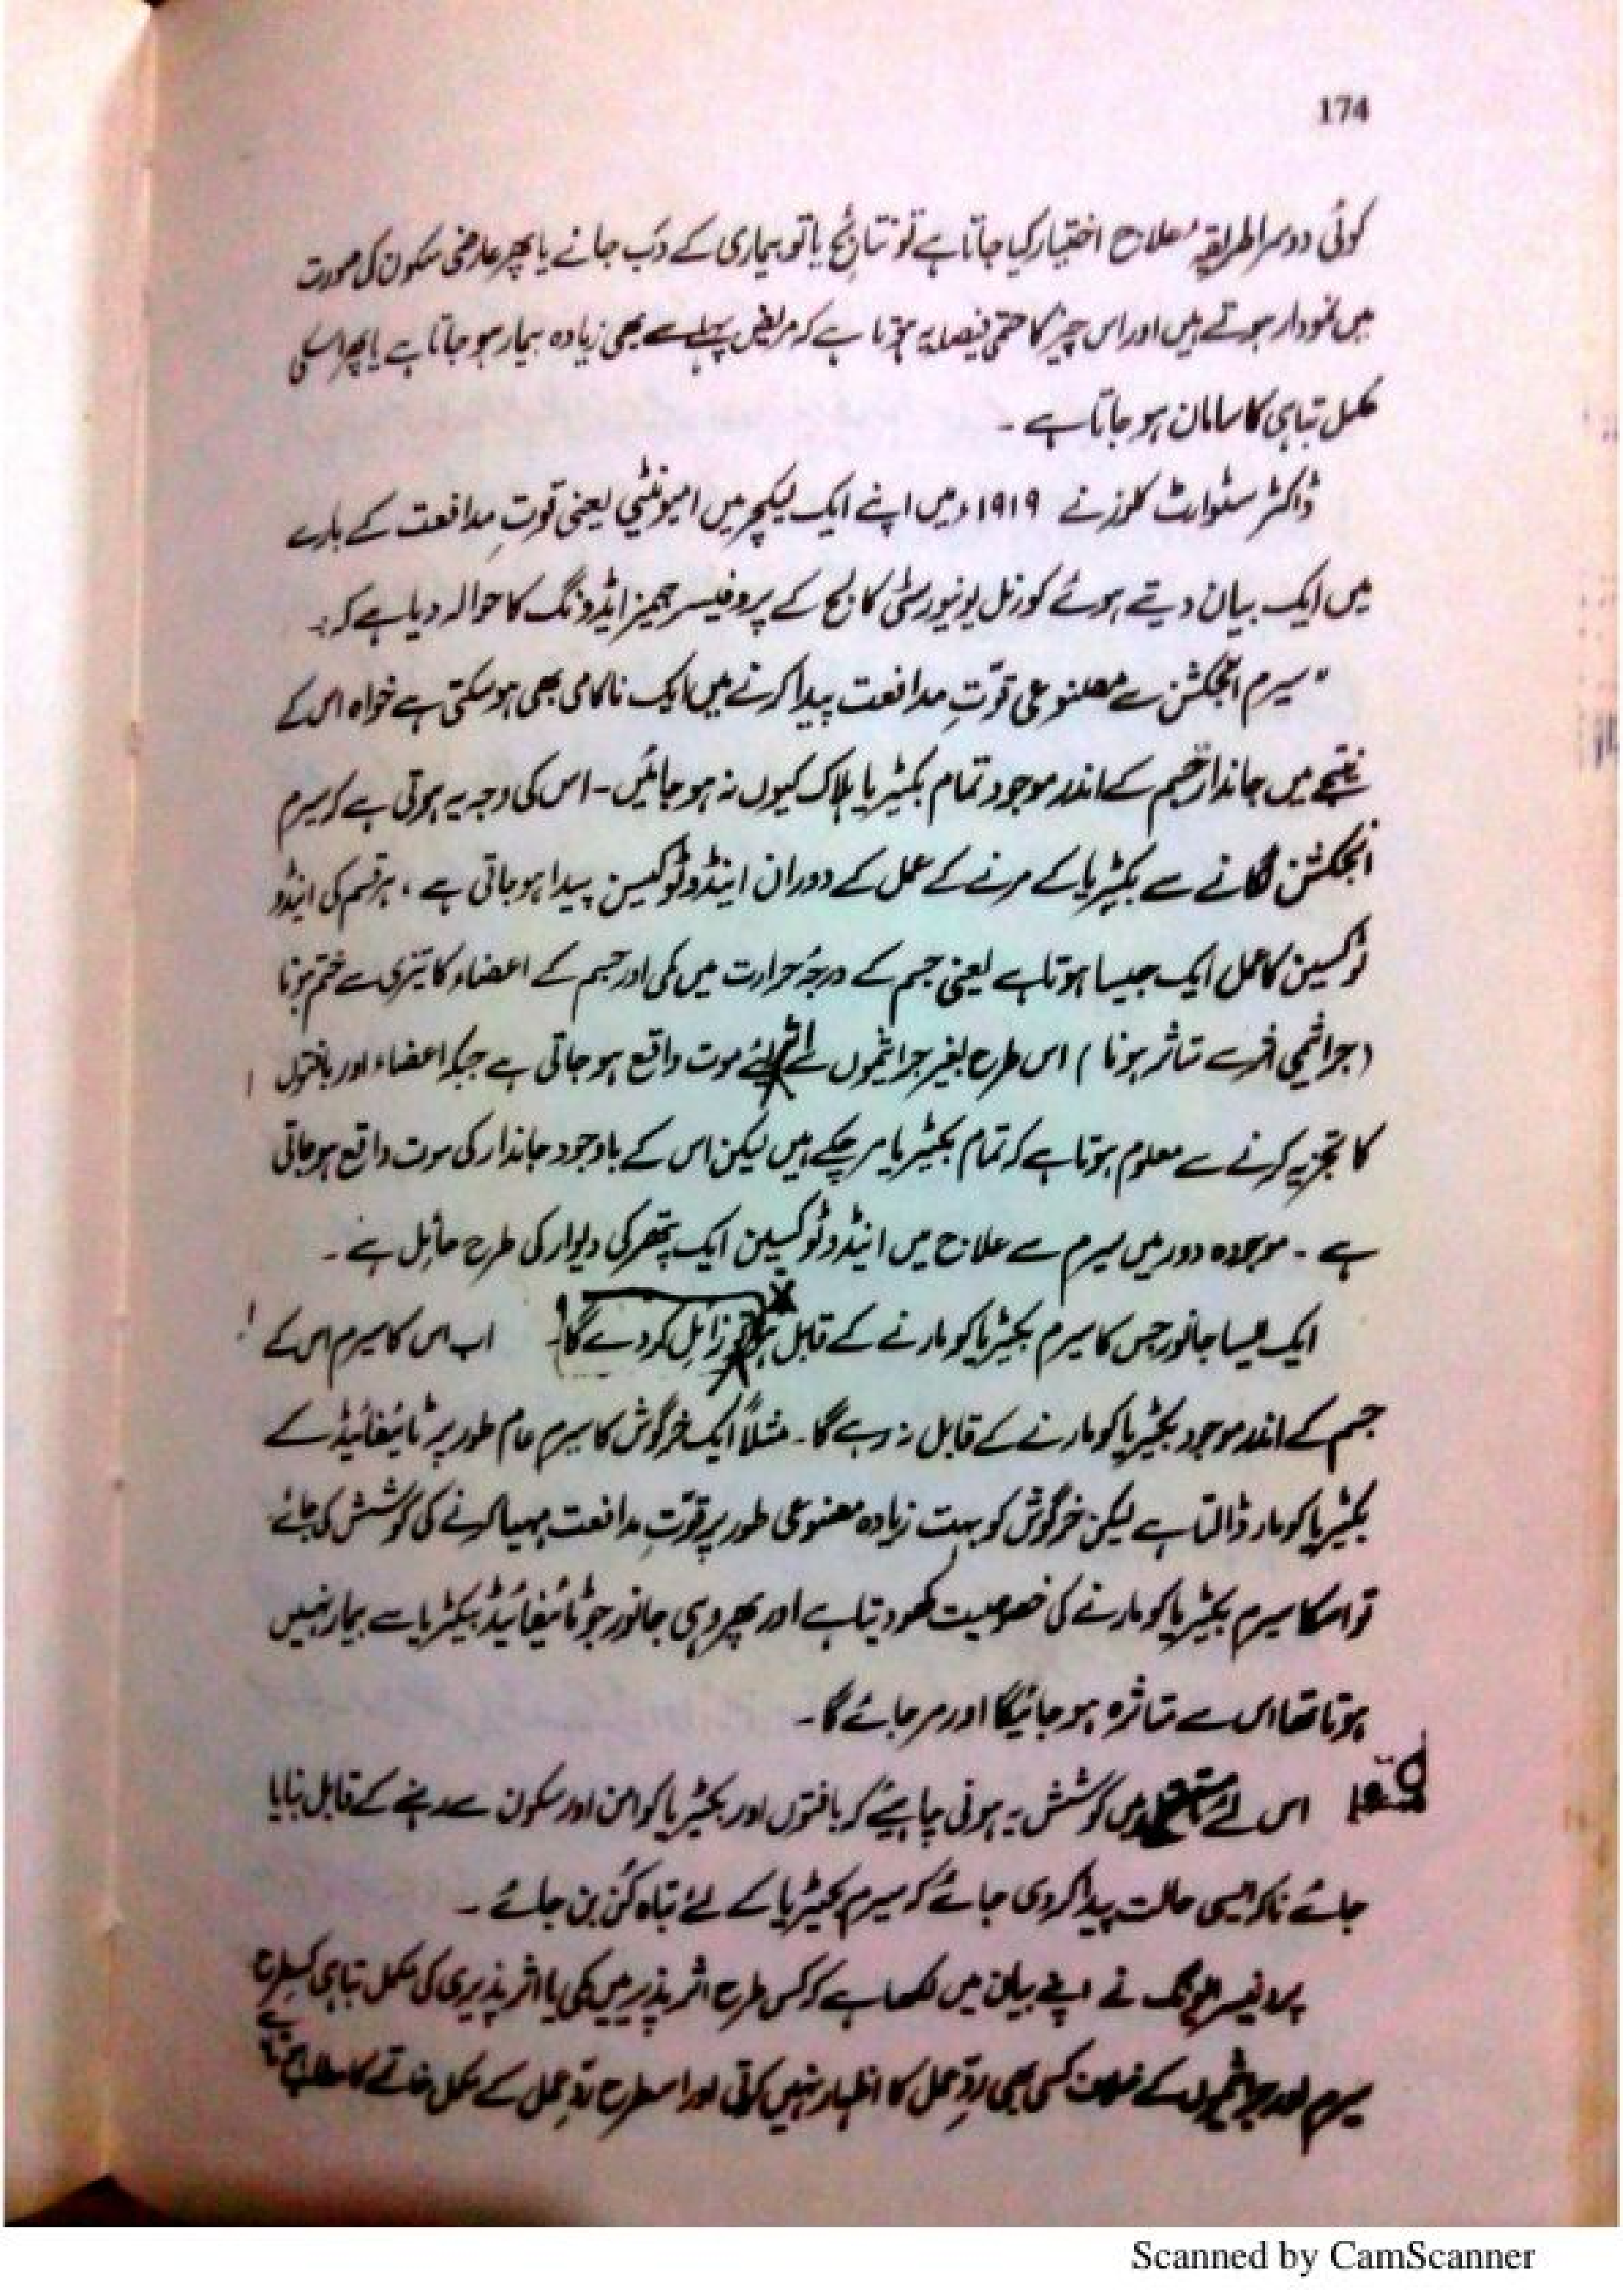 174
کوئی دوسرا طریقہٴ علاج اختیار کیا جاتا ہے تو نتائج یا تو بیماری کے دَب جانے یا پھر عارضی سکون کی صورت
میں نمودار ہوتے ہیں اور اس چیز کا حتمی فیصلہ یہ ہوتا ہے کہ مریض پہلے سے بھی زیادہ بیمار ہو جاتا ہے یا پھر اسکی
مکمل تباہی کا سامان ہو جاتا ہے ۔
ڈاکٹر سٹوارٹ کلوز نے ۱۹۱۹ء میں اپنے ایک لیکچر میں امیونٹی یعنی قوتِ مدافعت کے بارے
میں ایک بیان دیتے ہوئے کورنل یونیورسٹی کالج کے پروفیسر جیمز ایڈونگ کا حوالہ دیا ہے کہ :۔
" سیرم انجکشن سے مصنوعی قوّتِ مدافعت پیدا کرنے میں ایک ناکامی بھی ہو سکتی ہے خواہ اس کے
نتیجے میں جاندار جسم کے اندر موجود تمام بکٹیریا ہلاک کیوں نہ ہو جائیں ۔ اس کی وجہ یہ ہوتی ہے کہ سیرم
انجکشن لگانے سے بکٹیریا کے مرنے کے عمل کے دوران اینڈوٹوکسین پیدا ہو جاتی ہے ، ہر قسم کی اینڈو
ٹوکسین کا عمل ایک جیسا ہوتا ہے یعنی جسم کے درجہٴ حرارت میں کمی اور جسم کے اعضاء کا تیزی سے ختم ہونا
(جراثیمی اثر سے متاثر ہونا ) اس طرح بغیر جراثیموں کے اثر موت واقع ہو جاتی ہے جبکہ اعضاء اور بافتوں
کا تجزیہ کرنے سے معلوم ہوتا ہے کہ تمام بکٹیریا مر چکے ہیں لیکن اس کے باوجود جاندار کی موت واقع ہو جاتی
ہے ۔ موجودہ دور میں سیرم سے علاج میں اینڈوٹوکسین ایک پتھر کی دیوار کی طرح حائل ہے ۔
ایک ایسا جانور جس کا سیرم بکٹیریا کو مارنے کے قابل ہو زائل کر دے گا۔ اب اس کا سیرم اس کے
جسم کے اندر موجود بکٹیریا کو مارنے کے قابل نہ رہے گا۔ مثلاً ایک خرگوش کا سیرم عام طور پر ٹائیفائیڈ کے
بکٹیریا کو مار ڈالتا ہے لیکن خرگوش کو بہت زیادہ مصنوعی طور پر قوّتِ مدافعت مہیا کرنے کی کوشش کی جائے
تو اسکا سیرم بکٹیریا کو مارنے کی خصوصیت کھو دیتا ہے اور پھر وہی جانور جو ٹائیفائیڈ بیکٹریا سے بیمار نہیں
ہوتا تھا اس سے متاثرہ ہو جائیگا اور مر جائے گا۔
اس لئے مستقبل میں کوشش یہ ہونی چاہیئے کہ بافتوں اور بکٹیریا کو امن اور سکون سے رہنے کے قابل بنایا
جائے ناکہ ایسی حالت پیدا کر دی جائے کہ سیرم بکٹیریا کے لئے تباہ کُن بن جائے ۔
پروفیسر ایڈونگ نے اپنے بیان میں لکھا ہے کہ کس طرح اثر پذیر میں کمی یا اثر پذیری کی مکمل تباہی کسطرح
سیرم اور جراثیموں کے خلاف کسی بھی ردِّ عمل کا اظہار نہیں کرتی اور اسطرح ردِّ عمل کے مکمل خاتمے کا مطلب
Scanned by CamScanner